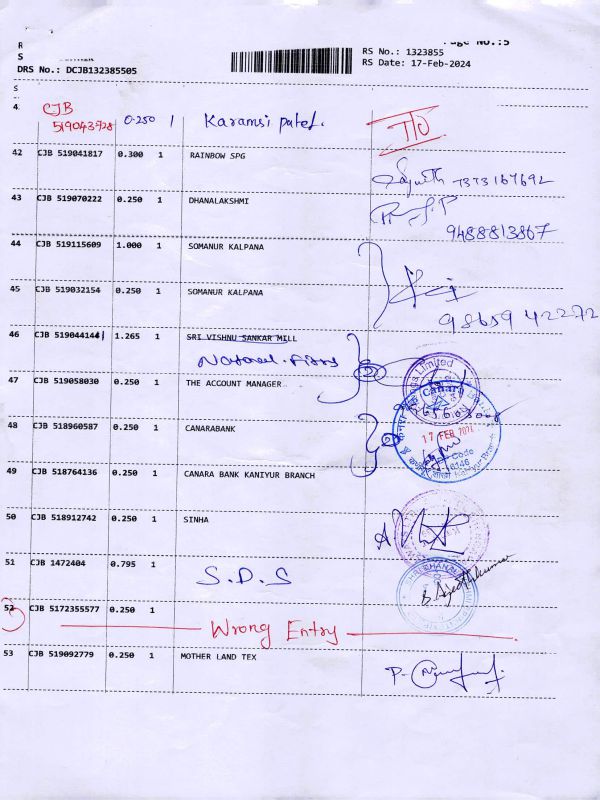 Page No.:5
RS No.: 1323855
RS Date: 17-Feb-2024
DRS No.: DCJB132385505
CJB 519043728 0.250 1 Karamsi patel.
42 CJB 519041817 0.300 1 RAINBOW SPG
7373167692
43 CJB 519070222 0.250 1 DHANALAKSHMI
9488813867
44 CJB 519115609 1.000 1 SOMANUR KALPANA
45 CJB 519032154 0.250 1 SOMANUR KALPANA
9865942272
46 CJB 519044144 1.265 1 SRI VISHNU SANKAR MILL
47 CJB 519058030 0.250 1 THE ACCOUNT MANAGER
Limited
Canara
48 CJB 518960587 0.250 1 CANARABANK
17 FEB 2024
Code
49 CJB 518764136 0.250 1 CANARA BANK KANIYUR BRANCH
50 CJB 518912742 0.250 1 SINHA
51 CJB 1472404 0.795 1 S.D.S
52 CJB 5172355577 0.250 1
Wrong Entry
53 CJB 519092779 0.250 1 MOTHER LAND TEX